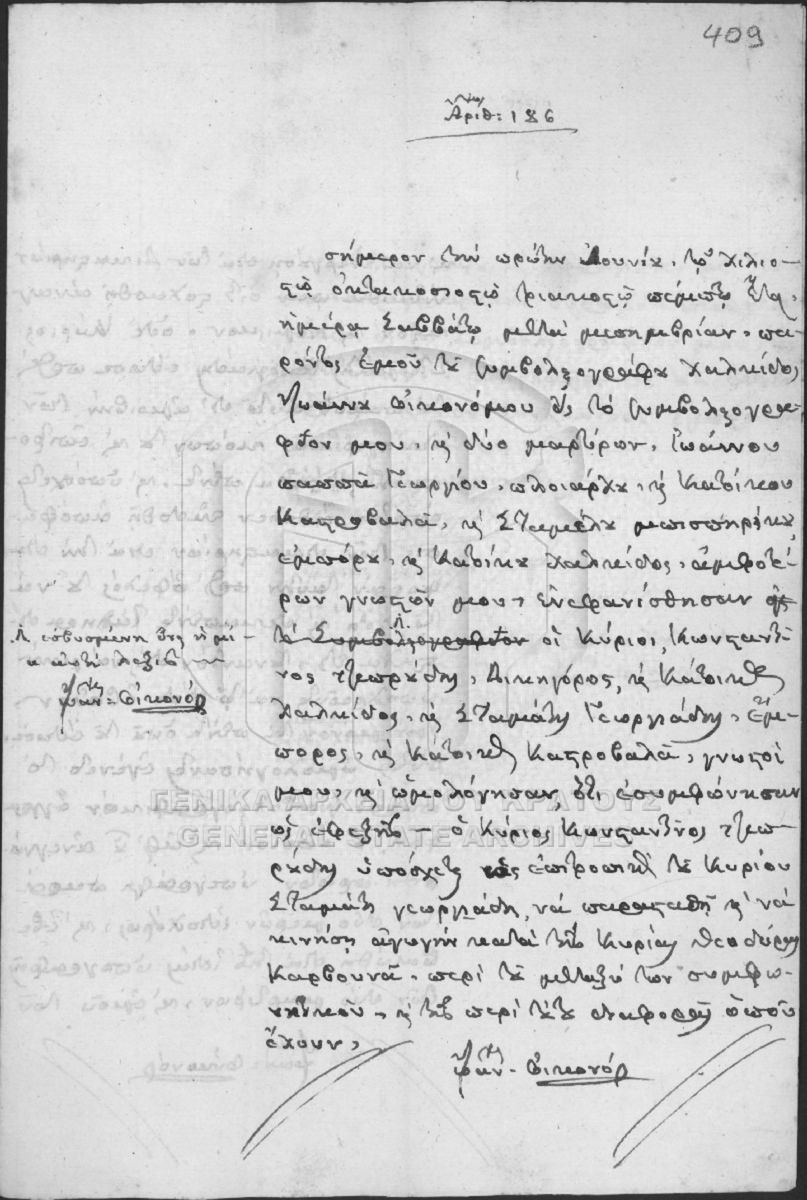 409
Ἀριθ: 186
σήμερον τὴν πρώτην Ἰουνίου, τῷ χιλιο-
στῷ ὀκτακοσιοστῷ τριακοστῷ πέμπτῳ ἔτει,
ἡμέρᾳ Σαββάτῳ μετὰ μεσημβρίαν, πα-
ρόντος ἐμοῦ τοῦ συμβολαιογράφου Χαλκίδος
Ἰωάννου Οἰκονόμου εἰς τὸ συμβολαιογρα-
φεῖον μου, καὶ δύο μαρτύρων, Ἰωάννου
παππᾶ Γεωργίου, πλοιάρχου, καὶ Κατοίκου
Καστροβαλᾶ, καὶ Σταμέλου
ἐμπόρου, καὶ Κατοίκου Χαλκίδος, ἀμφοτέ-
ρων γνωστῶν μου, ἐνεφανίσθησαν εἰς
τὸ Συμβολαιογραφεῖον οἱ Κύριοι, Κωνσταντῖ-
νος τζωρζίδης, Δικηγόρος, καὶ Κάτοικος
Χαλκίδος, καὶ Σταμάτης Γεωργιάδης, Ἔμ-
πορος, καὶ Κάτοικος Καστροβαλᾶ, γνωστοί
μου, καὶ ὡμολόγησαν, ὅτι ἐσυμφώνησαν
ὡς ἐφεξῆς – ὁ Κύριος Κωνσταντῖνος τζωρ-
ζίδης ὑπόσχεται ὡς ἐπίτροπος τοῦ Κυρίου
Σταμάτη γεωργιάδη, νὰ παρασταθῇ καὶ νὰ
κινήσῃ ἀγωγὴν κατὰ τῆς Κυρίας Θεοδώρας
Καρβουνᾶ, περὶ τοῦ μεταξὺ των συμφω-
νητικοῦ, καὶ τῆς περὶ τούτου διαφορᾶς ὁποῦ
ἔχουν,
Λ ἐσβυσμένη
λέξις
Ἰωάν: Οἰκονόμ
Ἰωάν: Οἰκονόμ
ΓΕΝΙΚΑ ΑΡΧΕΙΑ ΤΟΥ ΚΡΑΤΟΥΣ
GENERAL STATE ARCHIVES